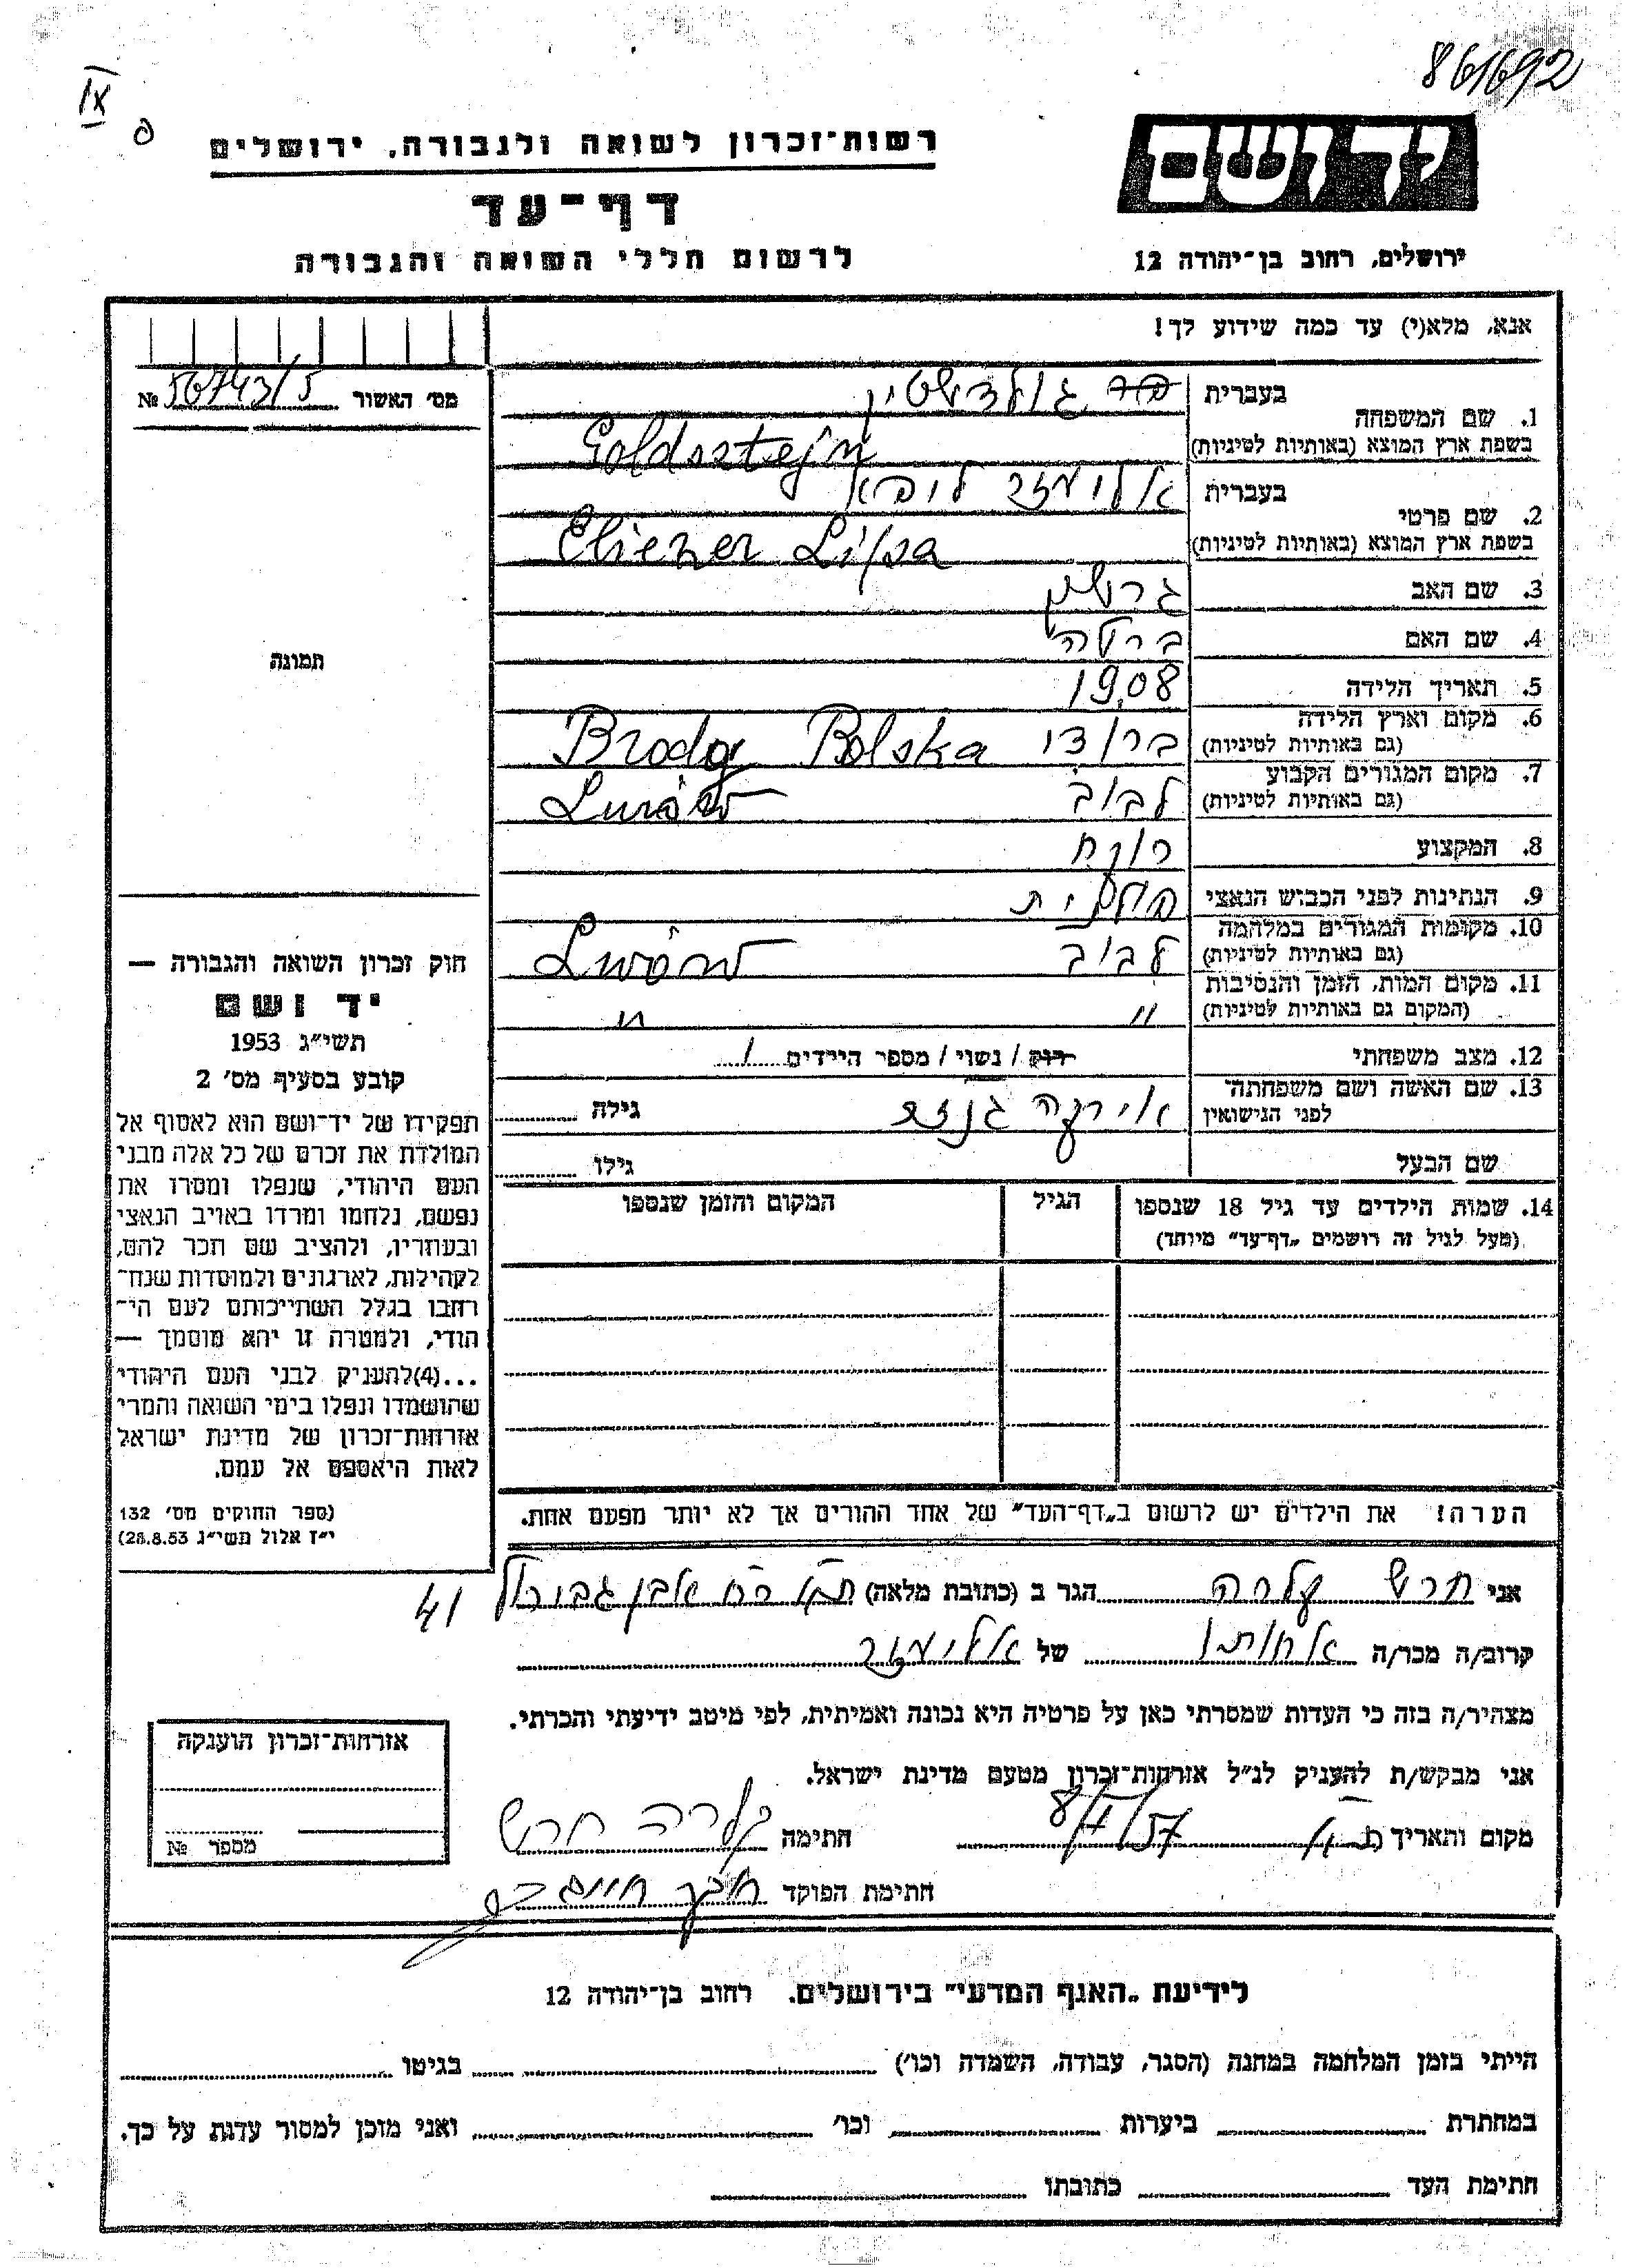 861692
IX
ס
רשות־זכרון לשואה ולגבורה, ירושלים
יד ושם
דף־עד
לרשום חללי השואה והגבורה
ירושלים, רחוב בן־יהודה 12
אנא, מלא(י) עד כמה שידוע לך!
מס׳ האשור № 56743/5
1. שם המשפחה
בעברית גולדשטיין
בשפת ארץ המוצא (באותיות לטיניות) Goldsztejn
2. שם פרטי
בעברית אליעזר ליפא
בשפת ארץ המוצא (באותיות לטיניות) Eliezer Lipa
3. שם האב גרשון
4. שם האם ברטה
5. תאריך הלידה 1908
6. מקום וארץ הלידה
(גם באותיות לטיניות) ברודי Brody Polska
7. מקום המגורים הקבוע
(גם באותיות לטיניות) לבוב Lwów
8. המקצוע רוקח
9. הנתינות לפני הכבוש הנאצי פולנית
10. מקומות המגורים במלחמה
(גם באותיות לטיניות) לבוב Lwów
11. מקום המות, הזמן והנסיבות
(המקום גם באותיות לטיניות) " "
12. מצב משפחתי רוק / נשוי / מספר הילדים 1
13. שם האשה ושם משפחתה לפני הנישואין אירקה גילה
שם הבעל גילו
תמונה
חוק זכרון השואה והגבורה —
יד ושם
תשי״ג 1953
קובע בסעיף מס׳ 2
תפקידו של יד־ושם הוא לאסוף אל
המולדת את זכרם של כל אלה מבני
העם היהודי, שנפלו ומסרו את
נפשם, נלחמו ומרדו באויב הנאצי
ובעוזריו, ולהציב שם וזכר להם,
לקהילות, לארגונים ולמוסדות שנח־
רבו בגלל השתייכותם לעם הי־
הודי, ולמטרה זו יהא מוסמך —
...(4)להעניק לבני העם היהודי
שהושמדו ונפלו בימי השואה והמרי
אזרחות־זכרון של מדינת ישראל
לאות היאספם אל עמם.
(ספר החוקים מס׳ 132
י״ז אלול תשי״ג 28.8.53)
14. שמות הילדים עד גיל 18 שנספו
(מעל לגיל זה רושמים „דף־עד״ מיוחד)
הגיל
המקום והזמן שנספו
הערה! את הילדים יש לרשום ב„דף־העד״ של אחד ההורים אך לא יותר מפעם אחת.
אני חרש קלרה הגר ב (כתובת מלאה) ת״א רח אבן גבירול 41
קרוב/ה מכר/ה אחותו של אליעזר
מצהיר/ה בזה כי העדות שמסרתי כאן על פרטיה היא נכונה ואמיתית, לפי מיטב ידיעתי והכרתי.
אני מבקש/ת להעניק לנ״ל אזרחות־זכרון מטעם מדינת ישראל.
מקום ותאריך ת״א 8/II/57 חתימה קלרה חרש
חתימת הפוקד
אזרחות־זכרון הוענקה
מספר №
לידיעת „האגף המדעי״ בירושלים. רחוב בן־יהודה 12
הייתי בזמן המלחמה במחנה (הסגר, עבודה, השמדה וכו׳) בגיטו
במחתרת ביערות וכו׳ ואני מוכן למסור עדות על כך.
חתימת העד כתובתו